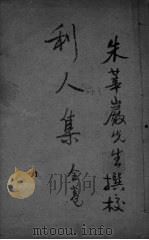 朱華巖先生撰校
利人集 全